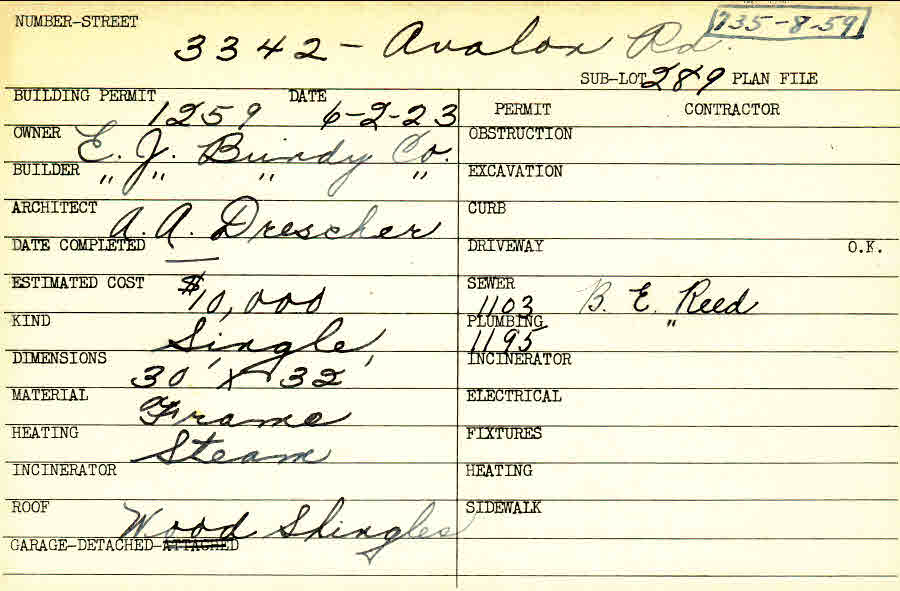 735-8-59
NUMBER-STREET
3342 - Avalon Rd.
SUB-LOT 289 PLAN FILE
BUILDING PERMIT 1259 DATE 6-2-23
PERMIT CONTRACTOR
OWNER E. J. Bundy Co.
OBSTRUCTION
BUILDER " " " "
EXCAVATION
ARCHITECT A. A. Drescher
CURB
DATE COMPLETED —
DRIVEWAY O.K.
ESTIMATED COST $10,000
SEWER 1103 B. E. Reed
KIND Single
PLUMBING 1195 "
DIMENSIONS 30' x 32'
INCINERATOR
MATERIAL Frame
ELECTRICAL
HEATING Steam
FIXTURES
INCINERATOR
HEATING
ROOF Wood Shingles
SIDEWALK
GARAGE-DETACHED-ATTACHED